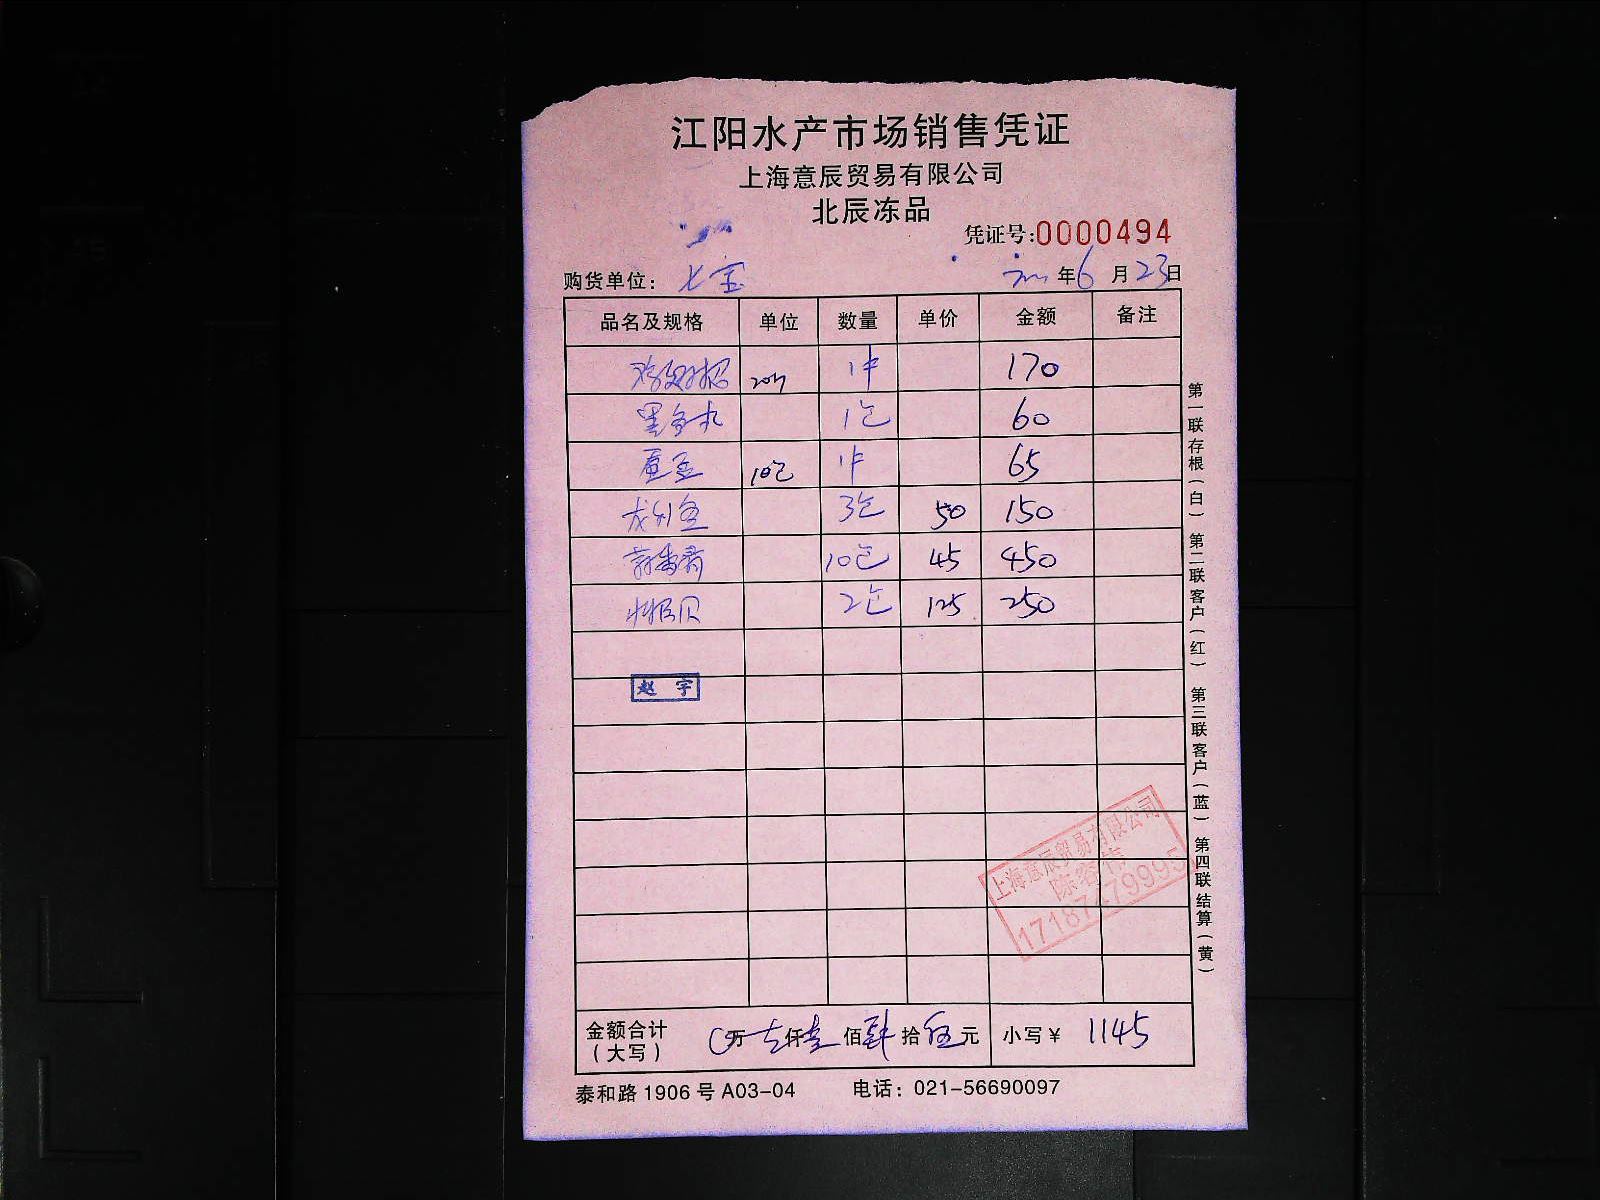 江阳水产市场销售凭证
上海意辰贸易有限公司
北辰冻品
凭证号:0000494
购货单位: 七宝 年6月23日
品名及规格 单位 数量 单价 金额 备注
1件 170
1包 60
10包 1件 65
龙利鱼 3包 50 150
10包 45 450
2包 125 250
赵宇
上海意辰贸易有限公司
金额合计(大写) 万 仟壹佰肆拾伍元 小写¥ 1145
泰和路1906号A03-04 电话: 021-56690097
第一联存根(白) 第二联客户(红) 第三联客户(蓝) 第四联结算(黄)